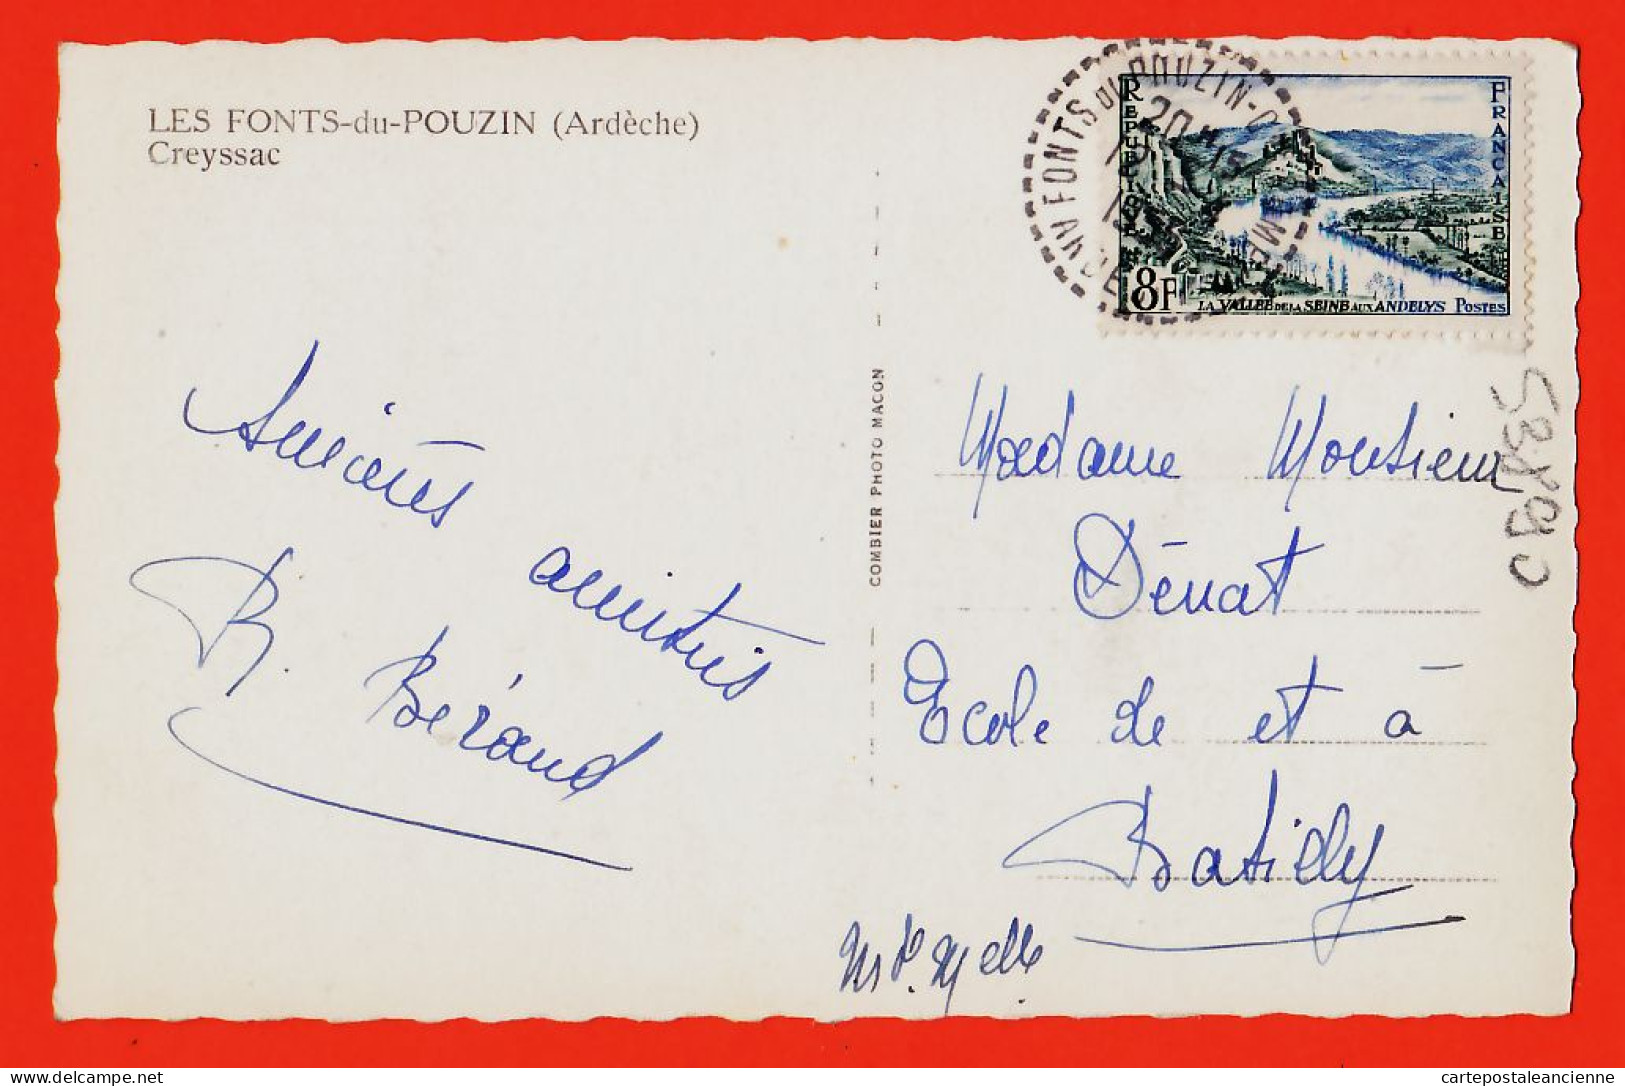 LES FONTS-du-POUZIN (Ardèche)
Creyssac
Sincères
amitiés
R. Béraud
COMBIER PHOTO MACON
FONTS du POUZIN
20H15
ARDÈCHE
REPUBLIQUE
FRANÇAISE
8F
LA VALLEE DE LA SEINE AUX ANDELYS POSTES
Madame Monsieur
Dénat
Ecole de et à
Batilly
Mthe Mlle
53890
cartepostaleancienne